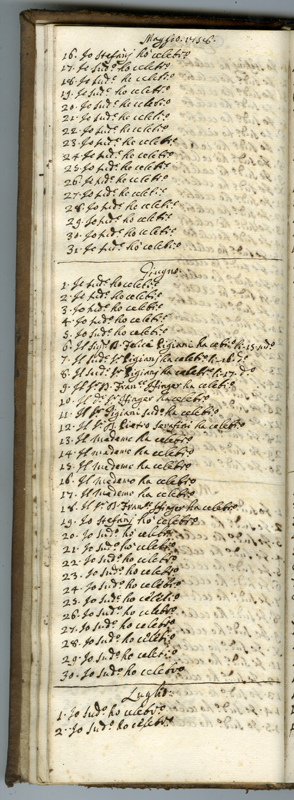 Maggio
16. Io Stefanj ho celebr.o
17. Io sud.o ho celebr.o
18. Io sud.o ho celebr.o
19. Io sud.o ho celebr.o
20. Io sud.o ho celebr.o
21. Io sud.o ho celebr.o
22. Io sud.o ho celebr.o
23. Io sud.o ho celebr.o
24. Io sud.o ho celebr.o
25. Io sud.o ho celebr.o
26. Io sud.o ho celebr.o
27. Io sud.o ho celebr.o
28. Io sud.o ho celebr.o
29. Io sud.o ho celebr.o
30. Io sud.o ho celebr.o
31. Io sud.o ho celebr.o
Giugno
1. Io sud.o ho celebr.o
2. Io sud.o ho celebr.o
3. Io sud.o ho celebr.o
4. Io sud.o ho celebr.o
5. Io sud.o ho celebr.o
6. Il Sig.r D. Felice Pigiani ha celebr.o
7. Il sud.o Sr. Pigianj ha celebr.o
8. Il sud.o Sr. Pigianj ha celebr.o
9. Il Sr. D. Fran.co ha celebr.o
10. Il ha celebr.o
11. Il Sr. Pigiani sud.o ha celebr.o
12. Il Sr. D. Pietro Serafini ha celebr.o
13. Il Medemo ha celebr.o
14. Il Medemo ha celebr.o
15. Il Medemo ha celebr.o
16. Il Medemo ha celebr.o
17. Il Medemo ha celebr.o
18. Il Sr. D. Fran.co ha celebr.o
19. Io Stefanj ho celebr.o
20. Io sud.o ho celebr.o
21. Io sud.o ho celebr.o
22. Io sud.o ho celebr.o
23. Io sud.o ho celebr.o
24. Io sud.o ho celebr.o
25. Io sud.o ho celebr.o
26. Io sud.o ho celebr.o
27. Io sud.o ho celebr.o
28. Io sud.o ho celebr.o
29. Io sud.o ho celebr.o
30. Io sud.o ho celebr.o
Luglio
1. Io sud.o ho celebr.o
2. Io sud.o ho celebr.o